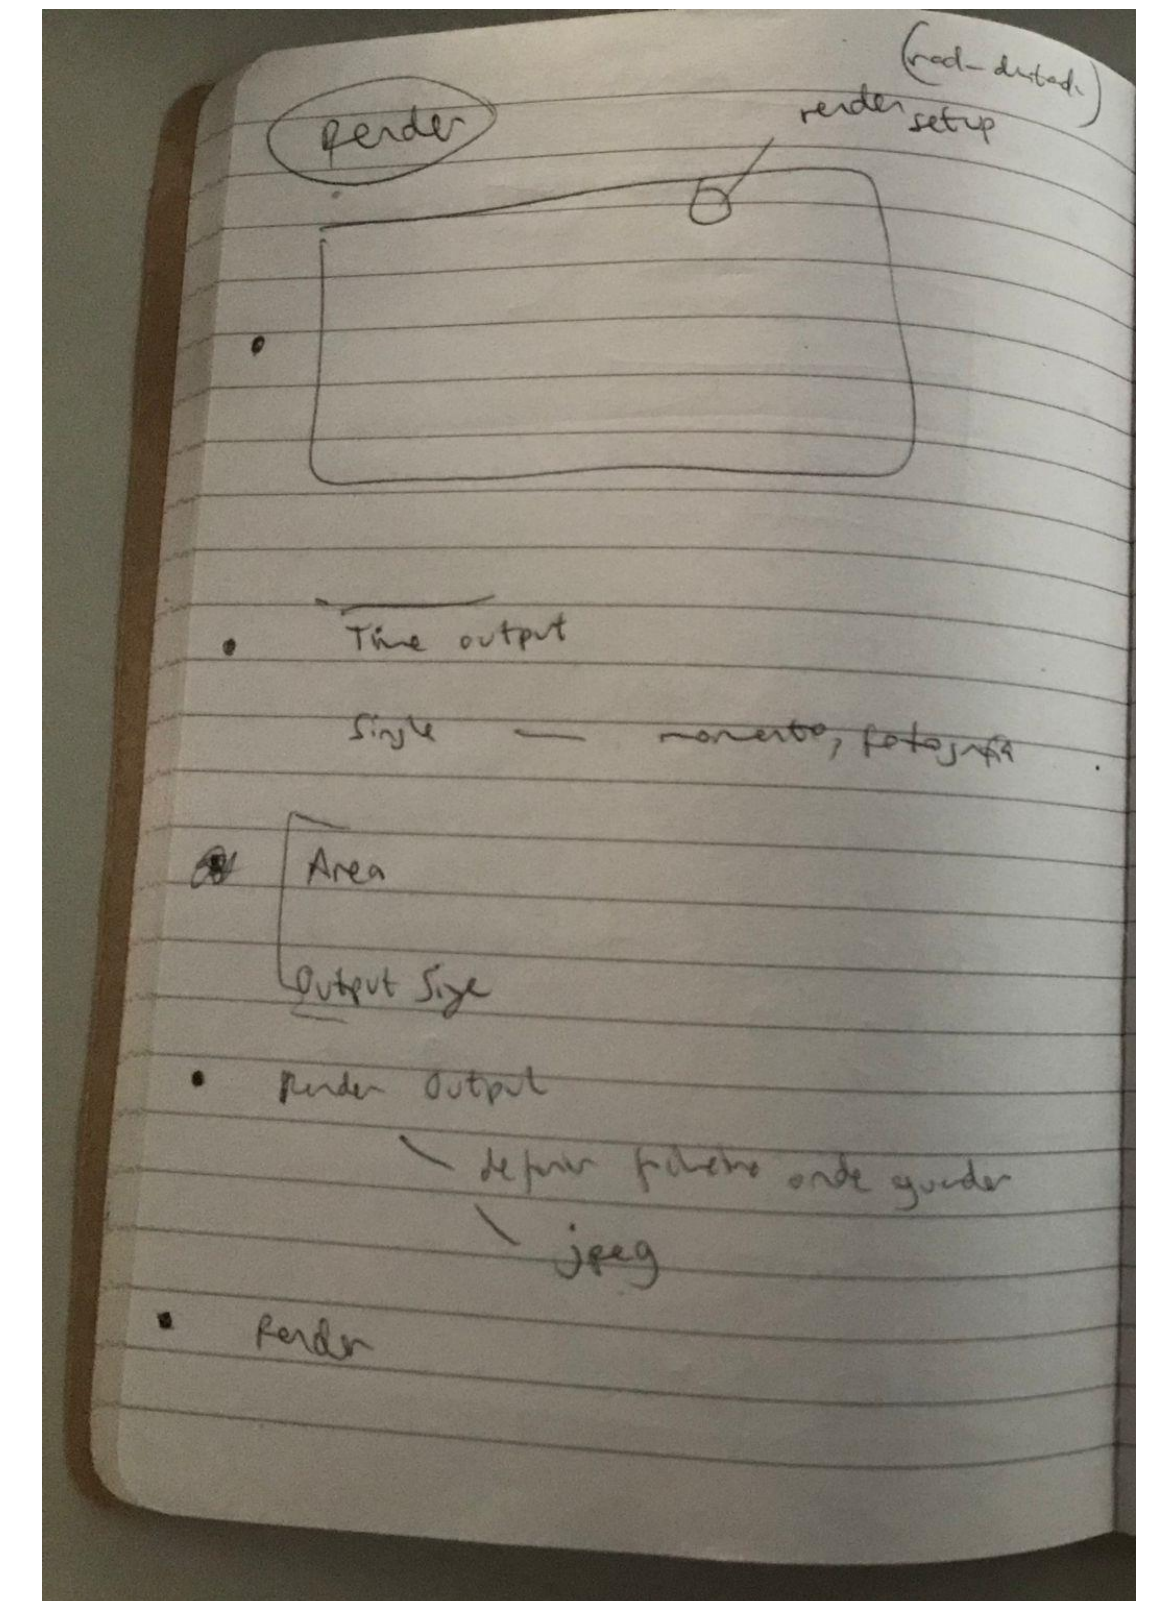 Render
render setup
Time output
Single — momento, fotografia
Area
Output Size
Render Output
definir ficheiro onde guardar
jpeg
Render